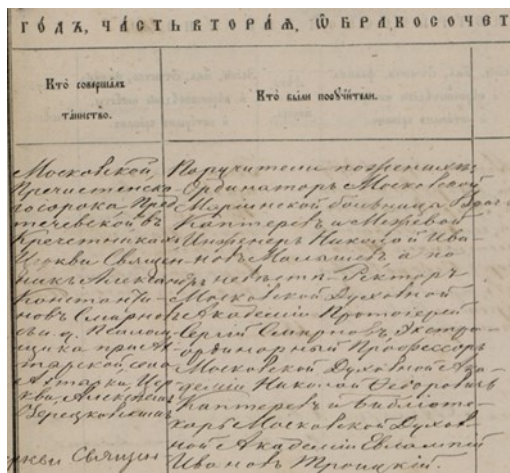 ГОДА, ЧАСТЬ ВТОРАЯ, Ѡ БРАКОСОЧЕТ
Кто совершалъ
таинство.
Кто были поручители.
Московской
Пречистенска-
го сорока Пред-
течевской въ
Кречетникахъ
Церкви Священ-
никъ Алексан
Константи-
новъ Смирновъ
Церкви Алексѣй
кви Священ
Поручители по женихѣ:
Ординаторъ Московской
Маріинской больницы Врач
Каптеревъ и Межевой
Инженеръ Николай Ива-
новъ Малышевъ а по
невѣстѣ Ректоръ
Московской Духовной
Академіи Протоіерей
Сергій Смирновъ Экстра-
ординарный Профессоръ
Московской Духовной Ака-
деміи Николай Федоровичъ
Каптеревъ и Библіоте-
карь Московской Духов-
ной Академіи Евлампій
Ивановъ Троицкій